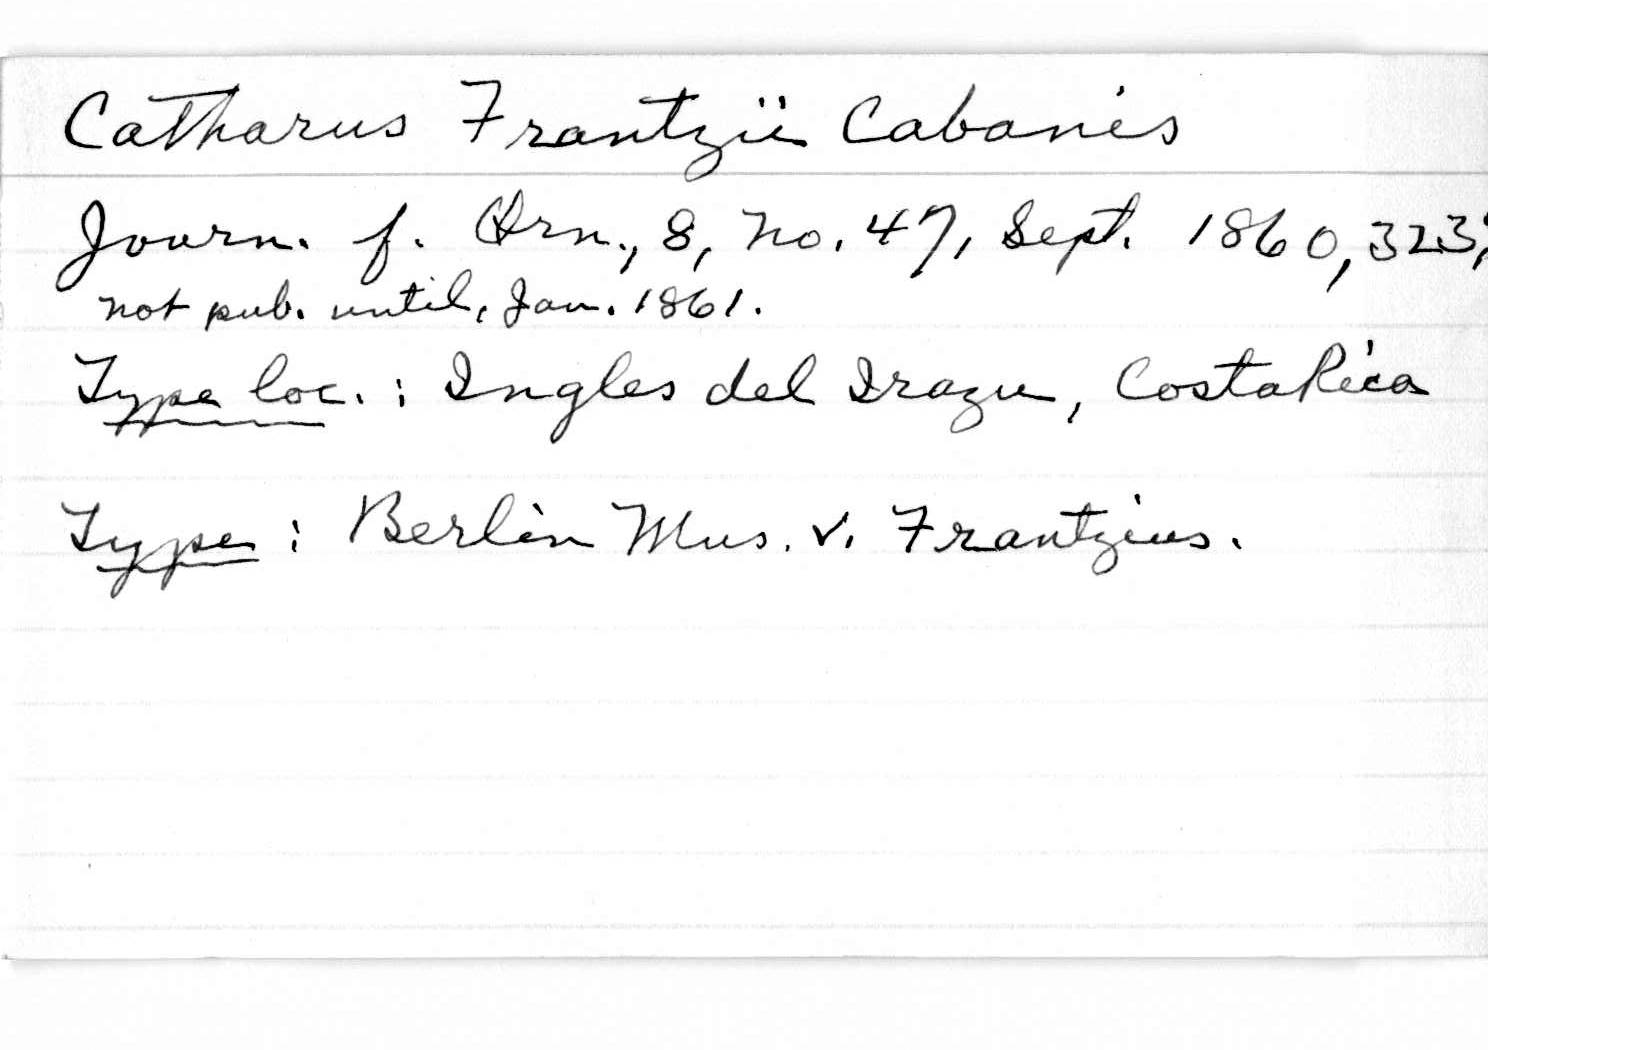 Catharus Frantzii Cabanis
Journ. f. Orn., 8, no. 47, Sept. 1860, 323;
not pub. until, Jan. 1861.
Type loc. : Ingles del Irazu, Costa Rica
Type : Berlin Mus. v. Frantzius.